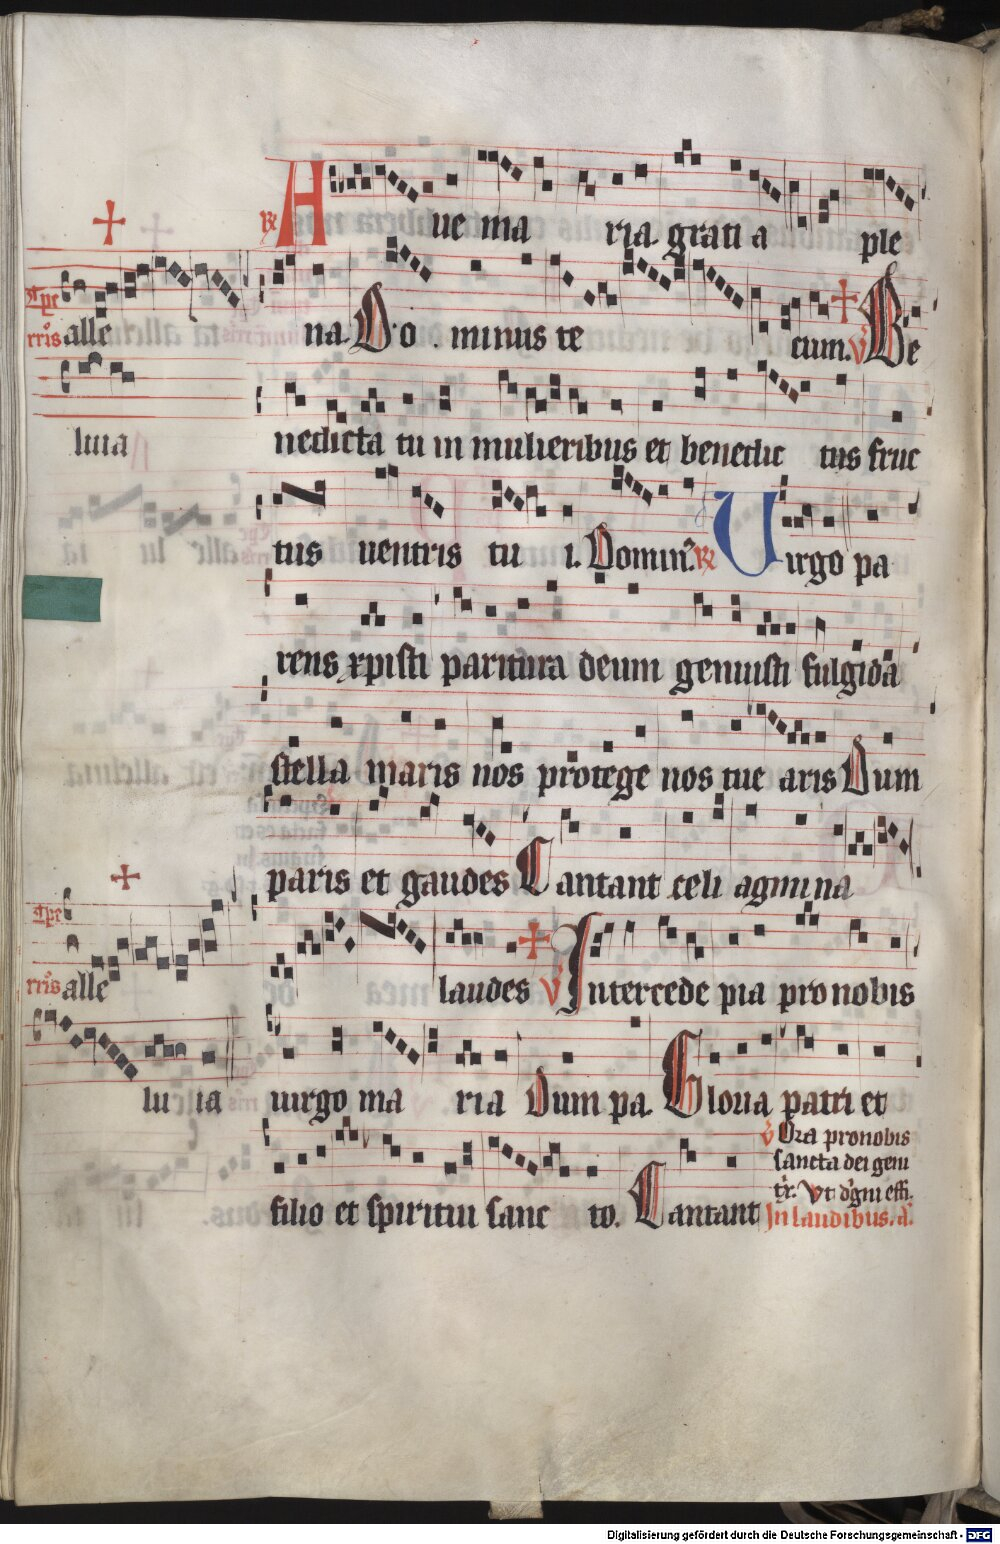 ℟ Aue ma ria grati a ple
na. Do minus te cum. ℣ Be
nedicta tu in mulieribus et benedic tus fruc
tus uentris tu i. Domin9. ℟ Uirgo pa
rens xpisti paritura deum genuisti fulgida
stella maris nos protege nos tue aris Dum
paris et gaudes Cantant celi agmina
laudes ℣ Intercede pia pro nobis
uirgo ma ria Dum pa. Gloria patri et
filio et spiritui sanc to. Cantant
℣ Ora pro nobis
sancta dei geni
Vt
In laudibus. a.
alle
luia
alle
lu ia
Digitalisierung gefördert durch die Deutsche Forschungsgemeinschaft - DFG